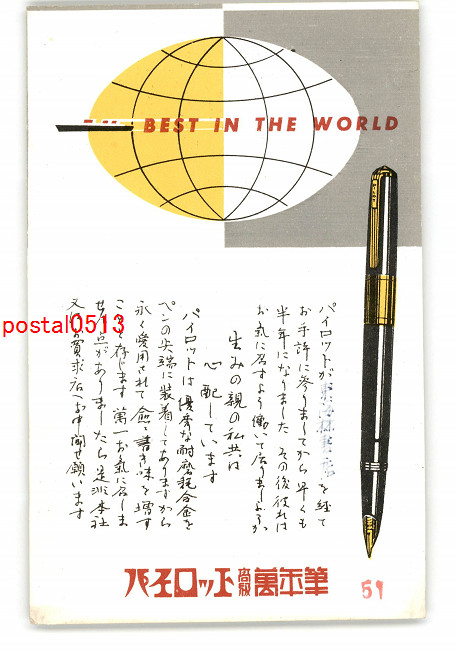 BEST IN THE WORLD
パイロットが
を経て
お手許に参りましてから早くも
半年になりました その後彼れは
お気に召すよう働いて居りましようか
生みの親の私共は
心配しています
パイロットは優秀な耐磨耗合金を
ペンの尖端に装着してありますから
永く愛用されて愈々書き味を増す
ことと存じます 萬一お気に召しま
せん点がありましたら是非本社
又はお買求店へお申聞せ願います
postal0513
パイロット高級萬年筆
51